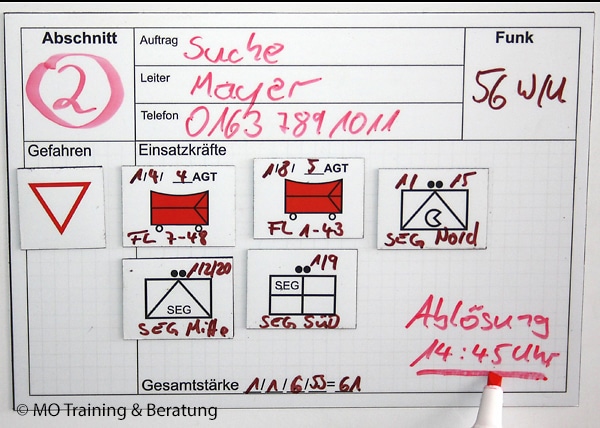 Abschnitt
2
Auftrag Suche
Leiter Mayer
Telefon 0163 789 1011
Funk
56 W/U
Gefahren
Einsatzkräfte
1/4/ 4 AGT
FL 7-48
1/8/ 5 AGT
FL 1-43
1/ 15
SEG Nord
1/2/20
SEG
SEG Mitte
1/9
SEG
SEG Süd
Ablösung
14:45 Uhr
Gesamtstärke 1/1/6/53=61
© MO Training & Beratung